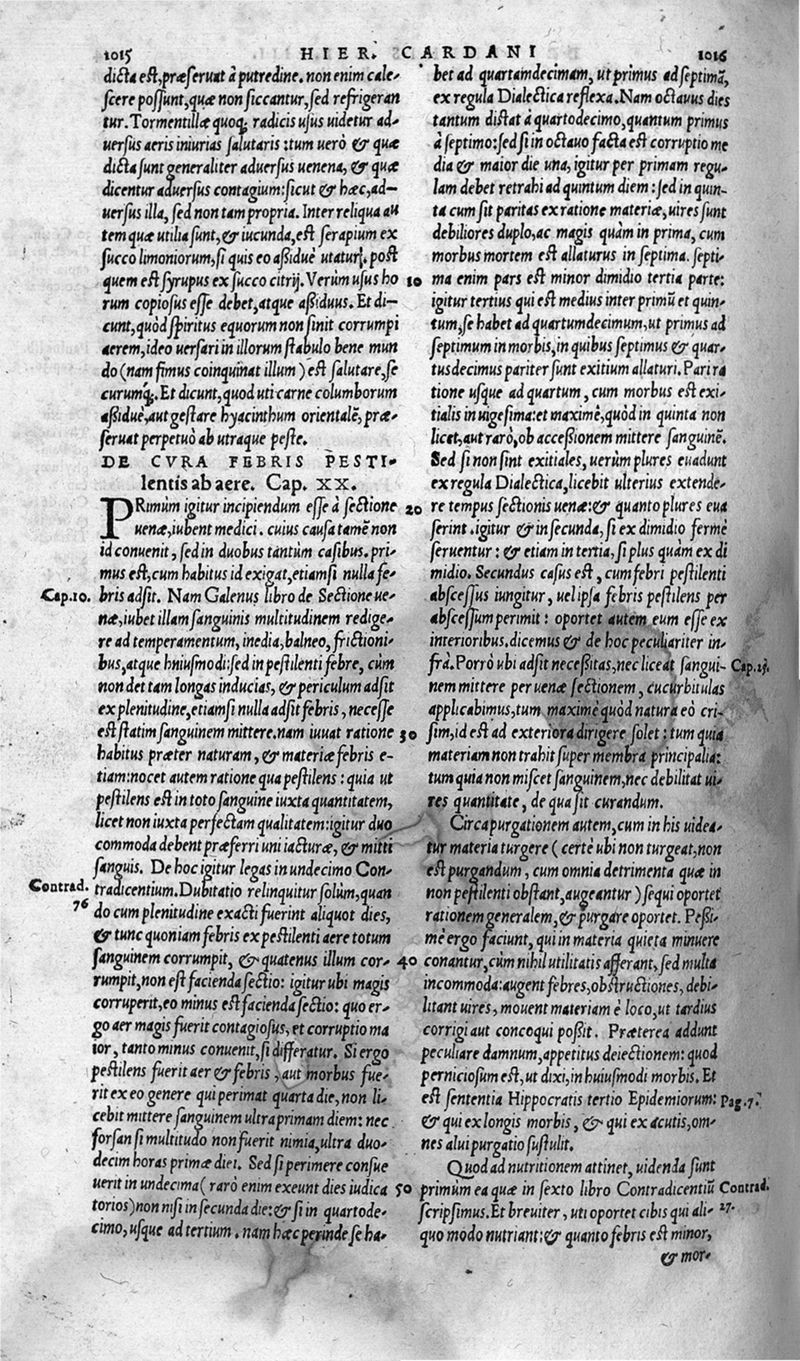 1015 HIER. CARDANI 1016
dicta est, præseruat à putredine. non enim cale-
scere possunt, quæ non siccantur, sed refrigeran
tur. Tormentillæ quoq; radicis usus uidetur ad-
uersus aeris iniurias salutaris: tum uerò & quæ
dicta sunt generaliter aduersus uenena, & quæ
dicentur aduersus contagium: sicut & hæc, ad-
uersus illa, sed non tam propria. Inter reliqua au
tem quæ utilia sunt, & iucunda, est serapium ex
succo limoniorum, si quis eo aßiduè utatur. post
quem est syrupus ex succo citrij. Verùm usus ho 10
rum copiosus esse debet, atque aßiduus. Et di-
cunt, quòd spiritus equorum non sinit corrumpi
aerem, ideo uersari in illorum stabulo bene mun
do (nam fimus coinquinat illum) est salutare, se
curumq;. Et dicunt, quod uti carne columborum
aßiduè, aut gestare hyacinthum orientalē, præ-
seruat perpetuò ab utraque peste.
DE CVRA FEBRIS PESTI-
lentis ab aere. Cap. XX.
PRimùm igitur incipiendum esse à sectione 20
uenæ, iubent medici. cuius causa tamē non
id conuenit, sed in duobus tantùm casibus. pri-
mus est, cum habitus id exigat, etiamsi nulla fe-
Cap. 10. bris adsit. Nam Galenus libro de Sectione ue-
næ, iubet illam sanguinis multitudinem redige-
re ad temperamentum, inedia, balneo, frictioni-
bus, atque hniusmodi: sed in pestilenti febre, cùm
non det tam longas inducias, & periculum adsit
ex plenitudine, etiamsi nulla adsit febris, necesse
est statim sanguinem mittere. nam iuuat ratione 30
habitus præter naturam, & materiæ febris e-
tiam: nocet autem ratione qua pestilens: quia ut
pestilens est in toto sanguine iuxta quantitatem,
licet non iuxta perfectam qualitatem: igitur duo
commoda debent præferri uni iacturæ, & mitti
sanguis. De hoc igitur legas in undecimo Con-
Contrad. tradicentium. Dubitatio relinquitur solùm, quan
76 do cum plenitudine exacti fuerint aliquot dies,
& tunc quoniam febris ex pestilenti aere totum
sanguinem corrumpit, & quatenus illum cor- 40
rumpit, non est facienda sectio: igitur ubi magis
corruperit, eo minus est facienda sectio: quo er-
go aer magis fuerit contagiosus, et corruptio ma
ior, tanto minus conuenit, si differatur. Si ergo
pestilens fuerit aer & febris, aut morbus fue-
rit ex eo genere qui perimat quarta die, non li-
cebit mittere sanguinem ultra primam diem: nec
forsan si multitudo non fuerit nimia, ultra duo-
decim horas primæ diei. Sed si perimere consue
uerit in undecima (rarò enim exeunt dies iudica 50
torios) non nisi in secunda die: & si in quartode-
cimo, usque ad tertium. nam hæc perinde se ha-
bet ad quartamdecimam, ut primus ad septimā,
ex regula Dialectica reflexa. Nam octauus dies
tantum distat à quartodecimo, quantum primus
à septimo: sed si in octauo facta est corruptio me
dia & maior die una, igitur per primam regu-
lam debet retrahi ad quintum diem: sed in quin-
ta cum sit paritas ex ratione materiæ, uires sunt
debiliores duplo, ac magis quàm in prima, cum
morbus mortem est allaturus in septima. septi-
ma enim pars est minor dimidio tertia parte:
igitur tertius qui est medius inter primū et quin-
tum, se habet ad quartumdecimum, ut primus ad
septimum in morbis, in quibus septimus & quar-
tusdecimus pariter sunt exitium allaturi. Pari ra
tione usque ad quartum, cum morbus est exi-
tialis in uigesima: et maximè, quòd in quinta non
licet, aut rarò, ob acceßionem mittere sanguinē.
Sed si non sint exitiales, uerùm plures euadunt
ex regula Dialectica, licebit ulterius extende-
re tempus sectionis uenæ: & quanto plures eua
serint. igitur & in secunda, si ex dimidio fermè
seruentur: & etiam in tertia, si plus quàm ex di
midio. Secundus casus est, cum febri pestilenti
abscessus iungitur, uel ipsa febris pestilens per
abscessum perimit: oportet autem eum esse ex
interioribus. dicemus & de hoc peculiariter in-
frà. Porrò ubi adsit neceßitas, nec liceat sangui- Cap. 23.
nem mittere per uenæ sectionem, cucurbitulas
applicabimus, tum maximè quòd natura eò cri-
sim, id est ad exteriora dirigere solet: tum quia
materiam non trahit super membra principalia:
tum quia non miscet sanguinem, nec debilitat ui-
res quantitate, de qua sit curandum.
Circa purgationem autem, cum in his uidea-
tur materia turgere (certè ubi non turgeat, non
est purgandum, cum omnia detrimenta quæ in
non pestilenti obstant, augeantur) sequi oportet
rationem generalem, & purgare oportet. Peßi-
mè ergo faciunt, qui in materia quieta minuere
conantur, cùm nihil utilitatis afferant, sed multa
incommoda: augent febres, obstructiones, debi-
litant uires, mouent materiam è loco, ut tardius
corrigi aut concoqui poßit. Præterea addunt
peculiare damnum, appetitus deiectionem: quod
perniciosum est, ut dixi, in huiusmodi morbis. Et
est sententia Hippocratis tertio Epidemiorum: Pag. 7.
& qui ex longis morbis, & qui ex acutis, om-
nes alui purgatio sustulit.
Quod ad nutritionem attinet, uidenda sunt
primùm ea quæ in sexto libro Contradicentiū Contrad.
scripsimus. Et breuiter, uti oportet cibis qui ali- 27.
quo modo nutriant: & quanto febris est minor,
& mor-